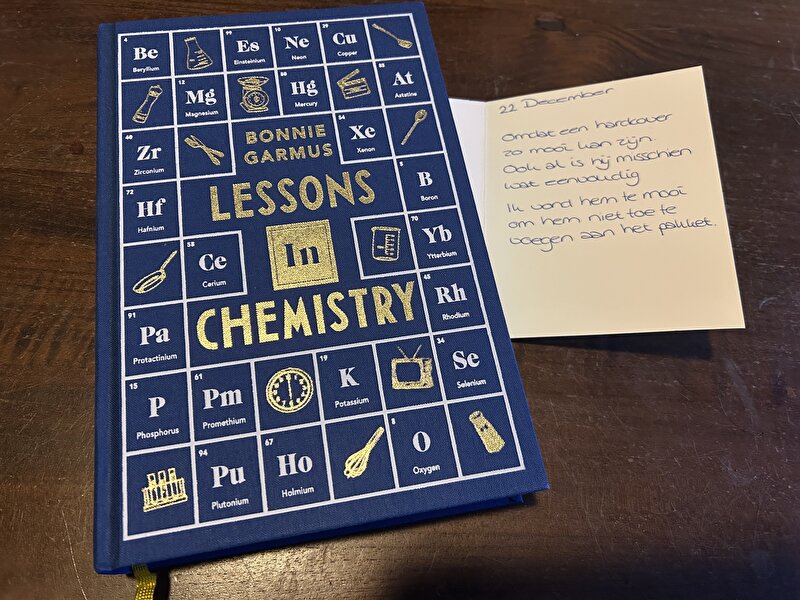 4 Be Beryllium
99 Es Einsteinium
10 Ne Neon
29 Cu Copper
12 Mg Magnesium
80 Hg Mercury
85 At Astatine
40 Zr Zirconium
BONNIE
GARMUS
54 Xe Xenon
72 Hf Hafnium
LESSONS
5 B Boron
58 Ce Cerium
In
70 Yb Ytterbium
91 Pa Protactinium
CHEMISTRY
45 Rh Rhodium
15 P Phosphorus
61 Pm Promethium
19 K Potassium
34 Se Selenium
94 Pu Plutonium
67 Ho Holmium
8 O Oxygen
22 December
Omdat een hardcover
zo mooi kan zijn.
Ook al is hij misschien
wat eenvoudig
Ik vond hem te mooi
om hem niet toe te
voegen aan het pakket.